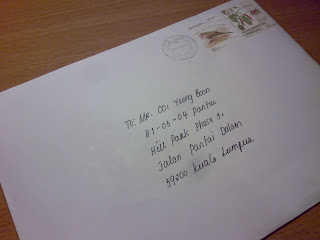 To: Mr. Ooi Yeong Boon
H1-03-04 Pantai
Hill Park Phase 3.
Jalan Pantai Dalam
59200 Kuala Lumpur